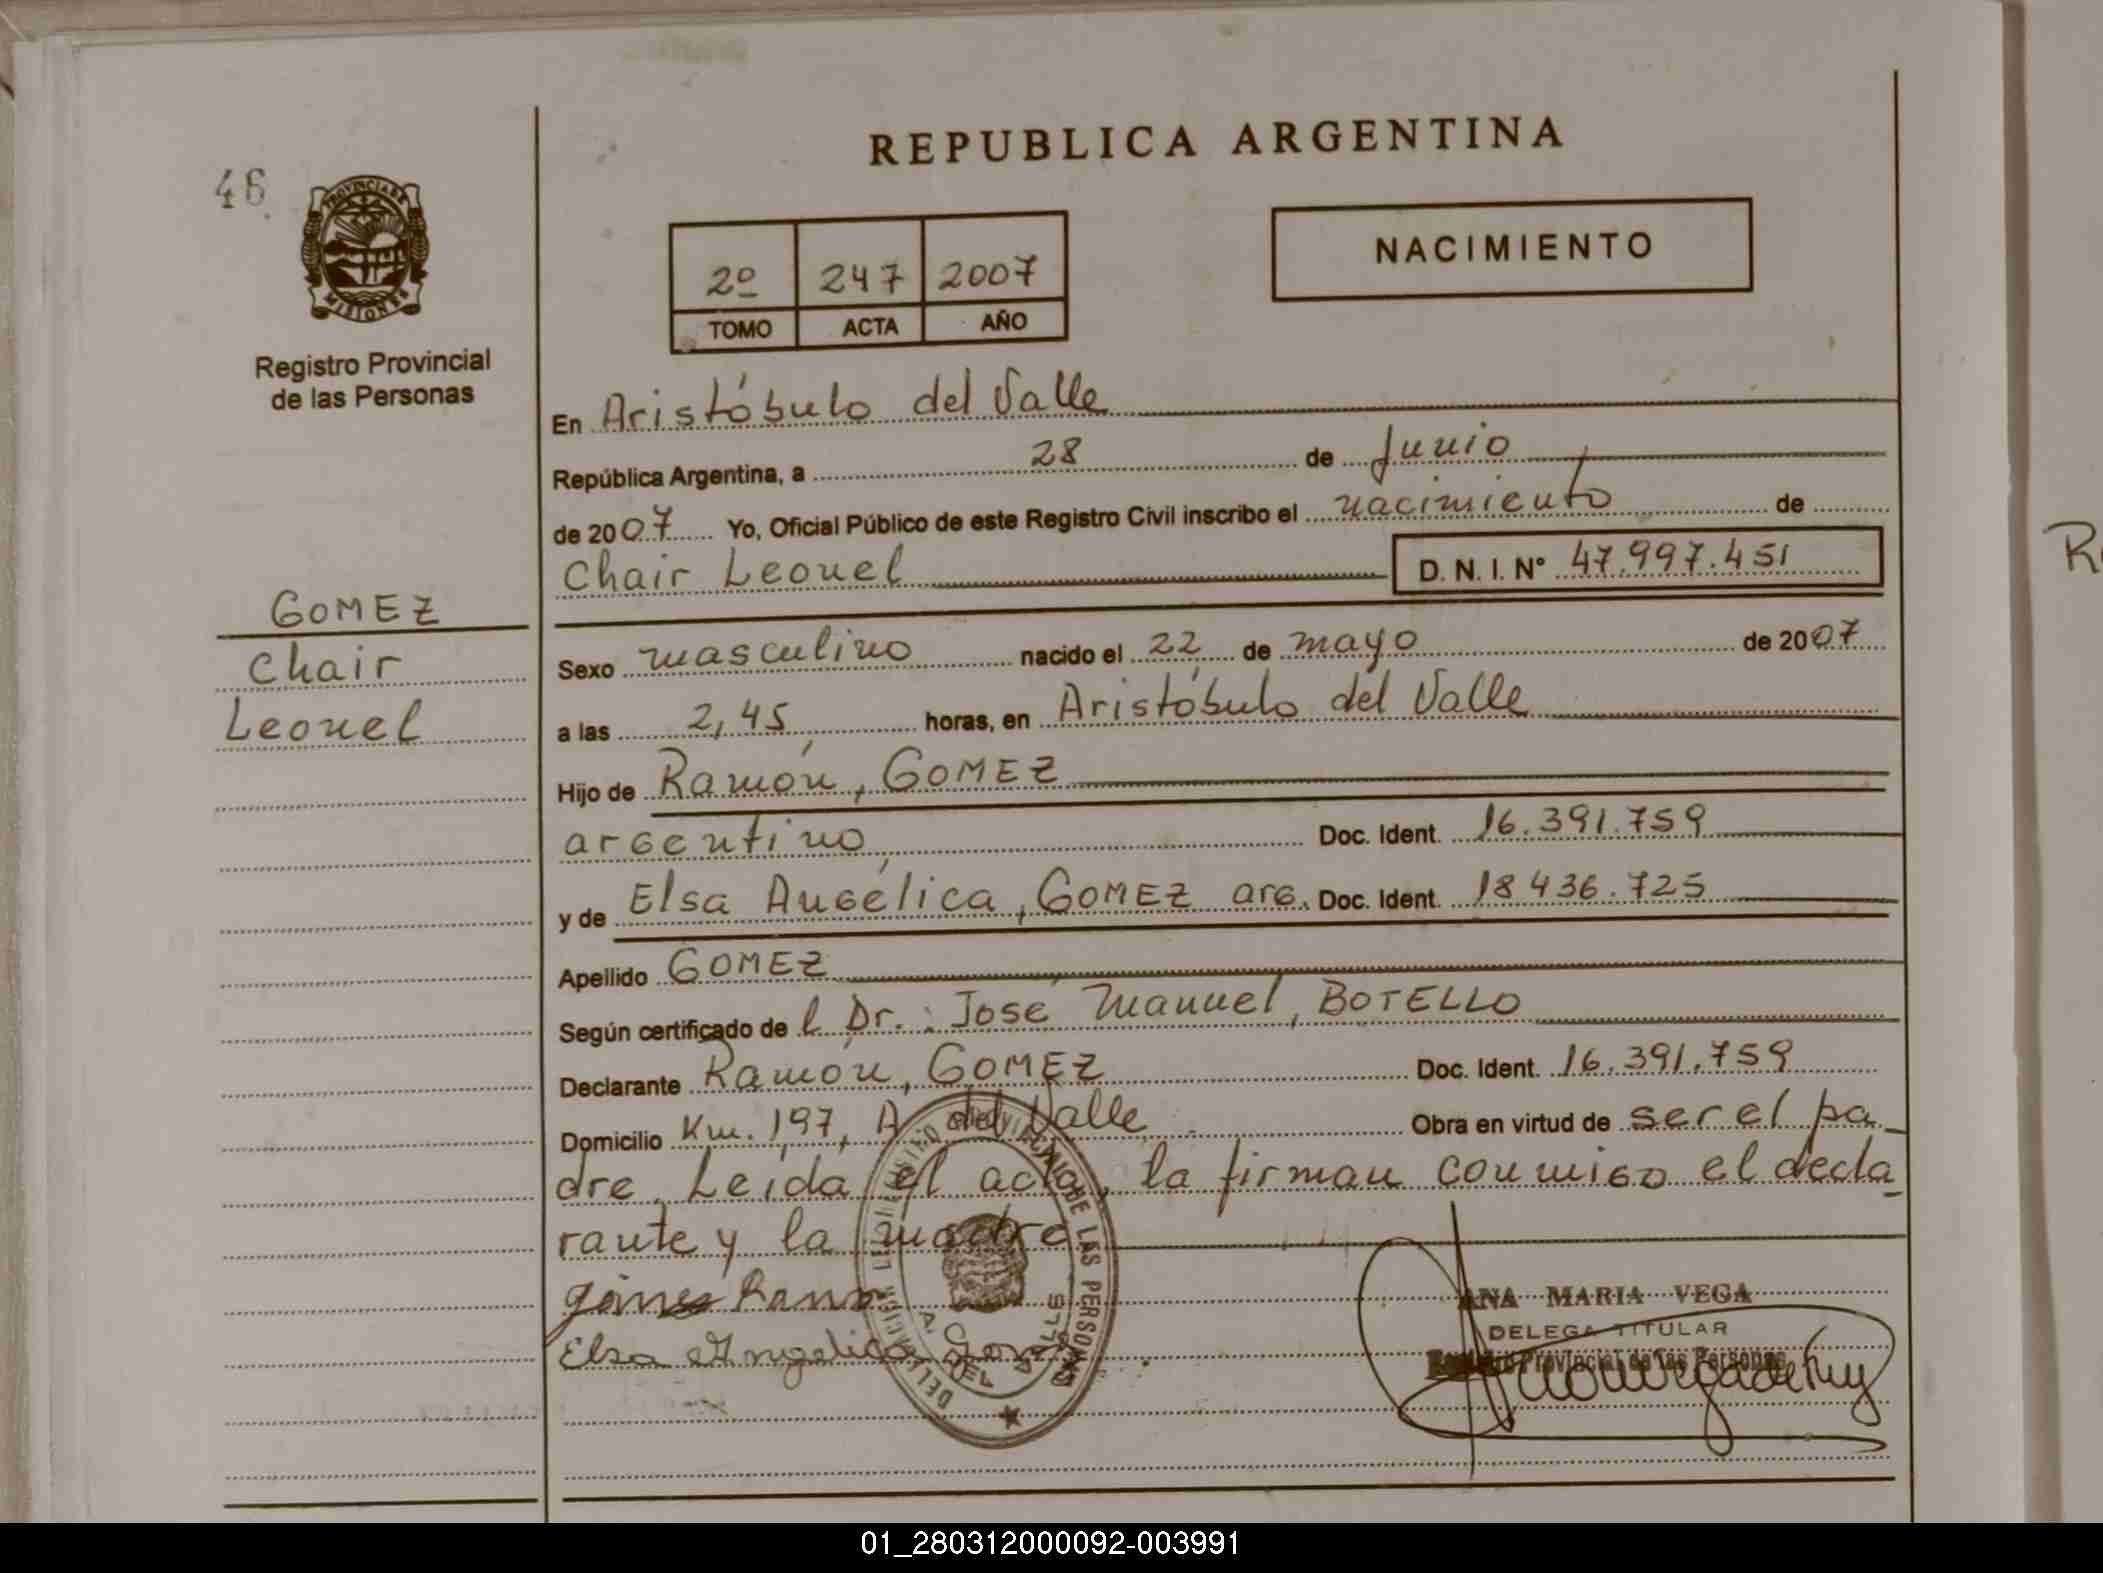 REPUBLICA ARGENTINA
46
PROVINCIA DE
MISIONES
Registro Provincial
de las Personas
2º 247 2007
TOMO ACTA AÑO
NACIMIENTO
En Aristóbulo del Valle
República Argentina, a 28 de Junio
de 2007 Yo, Oficial Público de este Registro Civil inscribo el nacimiento de
Chair Leonel D. N. I. Nº 47.997.451
GOMEZ
Chair
Leonel
Sexo masculino nacido el 22 de mayo de 2007
a las 2,45 horas, en Aristóbulo del Valle
Hijo de Ramón, GOMEZ
argentino Doc. Ident. 16.391.759
y de Elsa Angélica, GOMEZ arg. Doc. Ident. 18436.725
Apellido GOMEZ
Según certificado de l Dr.: José Manuel, BOTELLO
Declarante Ramón, GOMEZ Doc. Ident. 16.391.759
Domicilio Km. 197, A. del Valle Obra en virtud de ser el pa_
dre. Leída el acta, la firman conmigo el decla_
rante y la madre
Ramon
Elsa Angelica Gomez
DE LAS PERSONAS
A. DEL VALLE
ANA MARIA VEGA
DELEGA TITULAR
Registro Provincial de las Personas
R
01_280312000092-003991